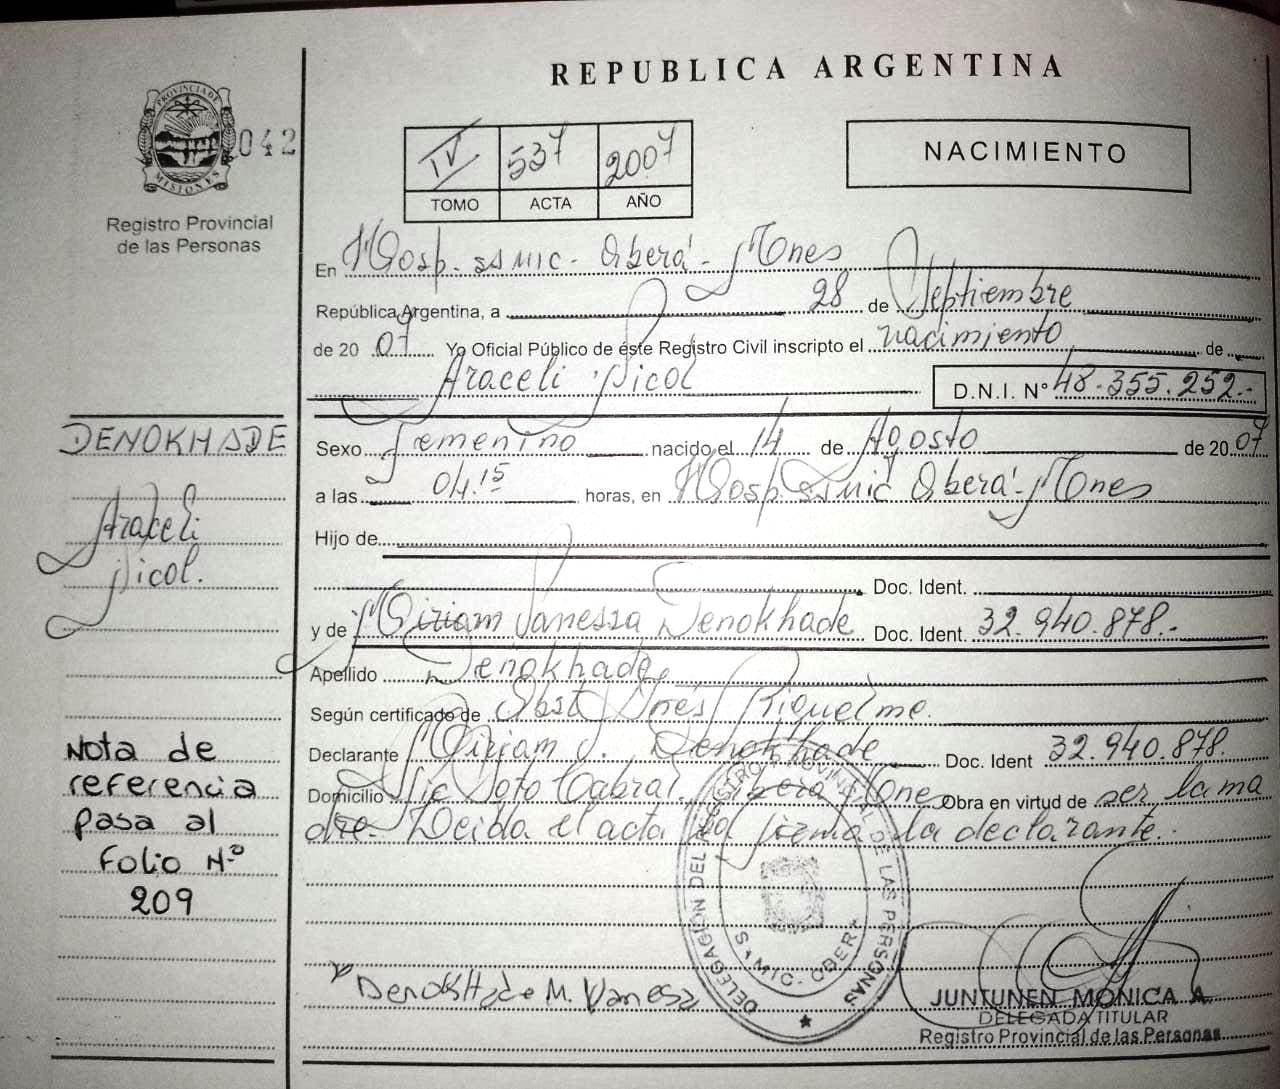 REPUBLICA ARGENTINA
PROVINCIA DE MISIONES
042
Registro Provincial
de las Personas
IV 537 2007
TOMO ACTA AÑO
NACIMIENTO
En Hosp. SSMIC - Oberá - Mones
República Argentina, a 28 de Septiembre
de 2007 Yo Oficial Público de éste Registro Civil inscripto el nacimiento de
Araceli Nicol D.N.I. Nº 48.355.252.-
DENOKHADE
Araceli
Nicol.
Sexo femenino nacido el 14 de Agosto de 2007
a las 04.15 horas, en Hosp. SSMIC Oberá - Mones
Hijo de
Doc. Ident.
y de Miriam Vanessa Denokhade Doc. Ident. 32.940.878.-
Apellido Denokhade
Según certificado de Obst. Inés Riquelme.
Declarante Miriam V. Denokhade Doc. Ident 32.940.878.
Domicilio Nic Soto Cabral. Oberá Mones Obra en virtud de ser la ma
dre. Leida el acta la firma la declarante.
Nota de
referencia
pasa al
Folio Nº
209
DELEGACION DEL REGISTRO PROVINCIAL DE LAS PERSONAS
S. MIC. OBERA
Denokhade M. Vanesa
JUNTUNEN MONICA A.
DELEGADA TITULAR
Registro Provincial de las Personas